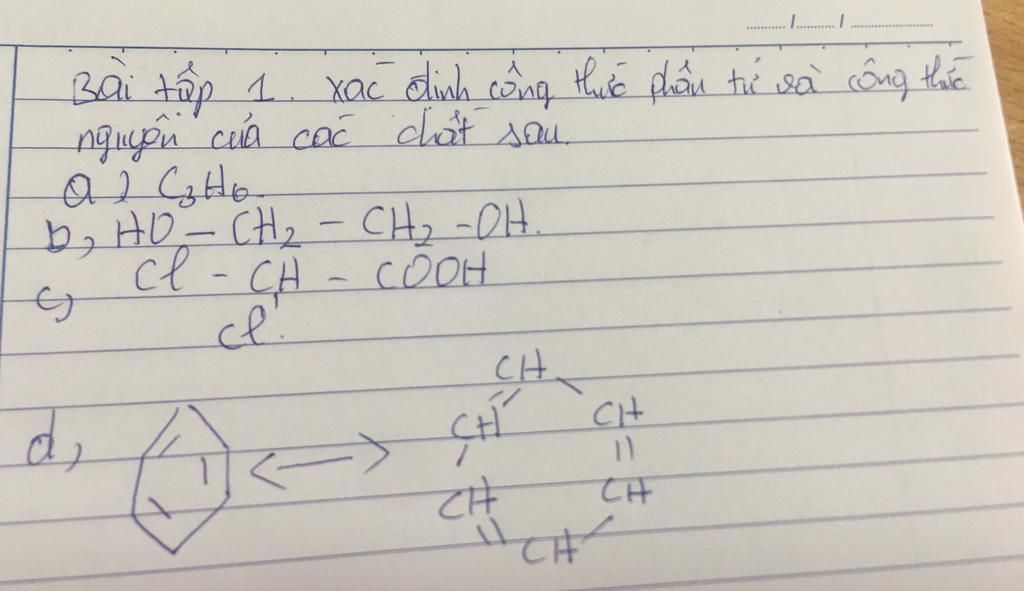 Bài tập 1. xác định công thức phân tử và công thức
nguyên của các chất sau.
a) C₃H₆.
b, HO – CH₂ – CH₂ – OH.
c) Cl – CH – COOH
Cl.
d,
CH
CH CH
CH CH
CH